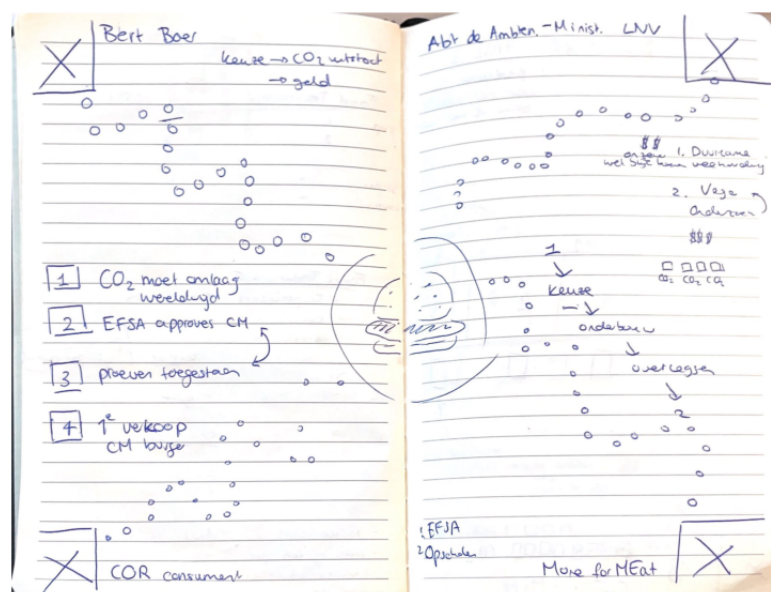 Bert Boer
keuze → CO2 uitstoot
→ geld
1 CO2 moet omlaag
wereldwijd
2 EFSA approves CM
3 proeven toegestaan
4 1e verkoop
CM burger
COR consument
Abt de Ambten. - Minist. LNV
$$
1. Duurzame
veehouderij
2. Vega
onderzoek
$$$
CO2 CO2 CO2
1
↓
keuze
onderbouw
↓
overleggen
↓
2
1. EFSA
2. Opschalen
More for MEat